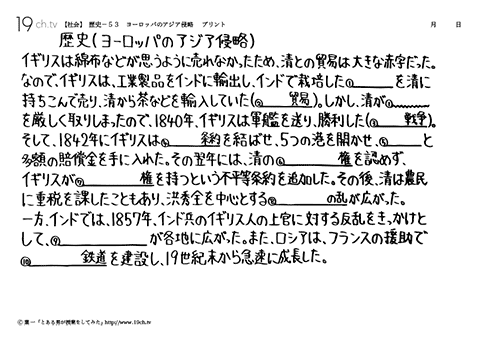 19ch.tv 【社会】 歴史－53 ヨーロッパのアジア侵略 プリント 月 日
歴史(ヨーロッパのアジア侵略)
イギリスは綿布などが思うように売れなかったため、清との貿易は大きな赤字だった。
なので、イギリスは、工業製品をインドに輸出し、インドで栽培した①______を清に
持ちこんで売り、清から茶などを輸入していた(②______貿易)。しかし、清が①______
を厳しく取りしまったので、1840年、イギリスは軍艦を送り、勝利した(③______戦争)。
そして、1842年にイギリスは④______条約を結ばせ、5つの港を開かせ、⑤______と
多額の賠償金を手に入れた。その翌年には、清の⑥______権を認めず、
イギリスが⑦______権を持つという不平等条約を追加した。その後、清は農民
に重税を課したこともあり、洪秀全を中心とする⑧______の乱が広がった。
一方、インドでは、1857年、インド兵のイギリス人の上官に対する反乱をきっかけと
して、⑨______が各地に広がった。また、ロシアは、フランスの援助で
⑩______鉄道を建設し、19世紀末から急速に成長した。
Ⓒ葉一「とある男が授業をしてみた」http://www.19ch.tv